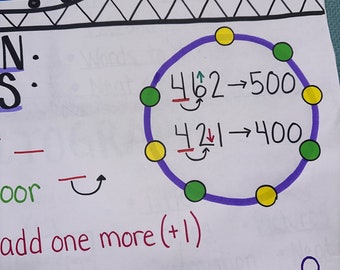 N:
S:
462→500
421→400
oor
add one more (+1)